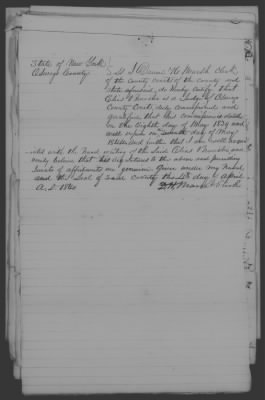 State of New York }
Oswego County } SS I Daniel H Marsh Clerk
of the County Courts of the County and
State aforesaid, do hereby Certify that
Elias is a Judge of Oswego
County Courts duly commissioned and
qualified that his commission is dated
on the Eighth day of May 1839 and
will expire on day of May
and further that I am well acquain
ted with the hand writing of the said Elias and
verily believe that his Signatures to the above and preceding
Jurats of affidavits are genuine Given under my hand
and the Seal of said County this day of April
A.D. 1840
D H Marsh Clerk